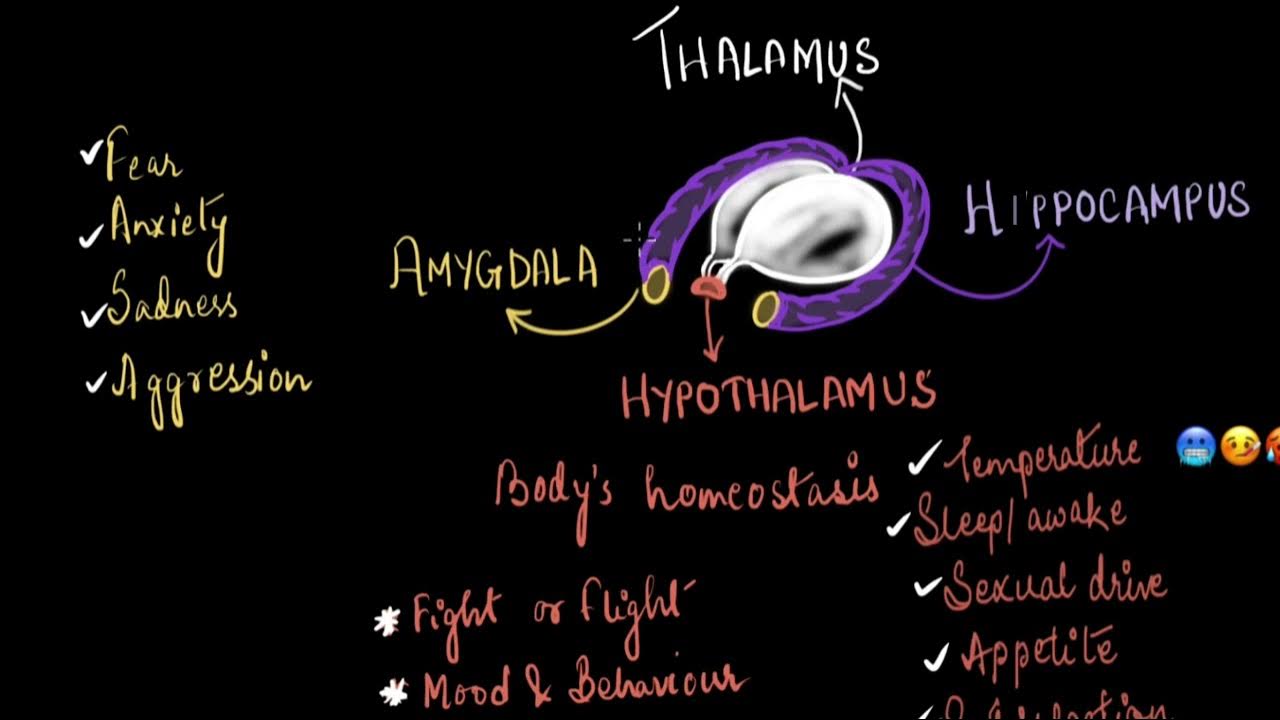 THALAMUS
Fear
Anxiety
Sadness
Aggression
AMYGDALA
HIPPOCAMPUS
HYPOTHALAMUS
Body's homeostasis
Temperature
Sleep/awake
Sexual drive
Appetite
* Fight or flight
* Mood & Behaviour